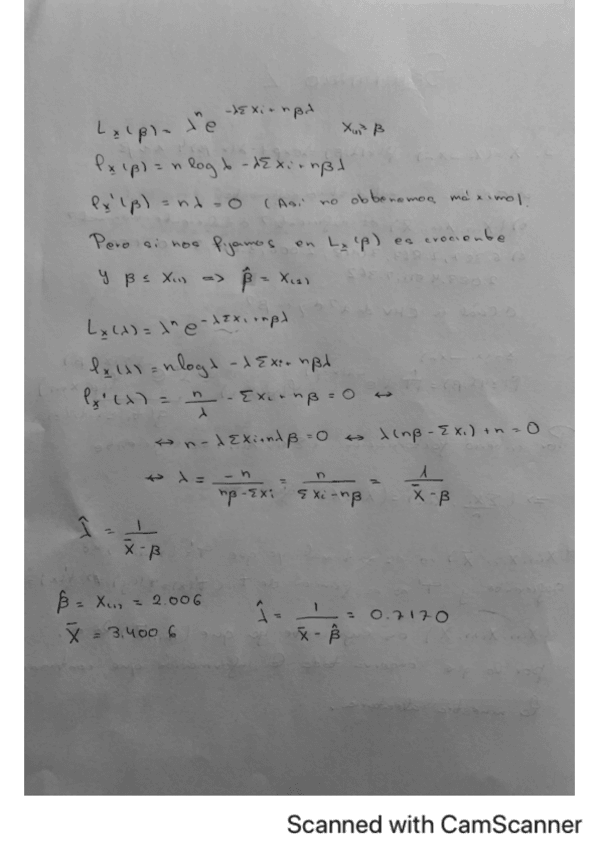 L_x(β) = λ^n e^{-λΣxi + nβλ}   X_(1) ≥ β
l_x(β) = n log λ - λΣxi + nβλ
l_x'(β) = nλ = 0 (Así no obtenemos máximo).
Pero si nos fijamos en L_x(β) es creciente
y β ≤ X_(1) => β̂ = X_(1)
L_x(λ) = λ^n e^{-λΣxi + nβλ}
l_x(λ) = n log λ - λΣxi + nβλ
l_x'(λ) = n/λ - Σxi + nβ = 0 ↔
↔ n - λΣxi + nλβ = 0 ↔ λ(nβ - Σxi) + n = 0
↔ λ = -n/(nβ - Σxi) = n/(Σxi - nβ) = 1/(x̄ - β)
λ̂ = 1/(x̄ - β)
β̂ = X_(1) = 2.006   λ̂ = 1/(x̄ - β̂) = 0.7170
x̄ = 3.4006
Scanned with CamScanner